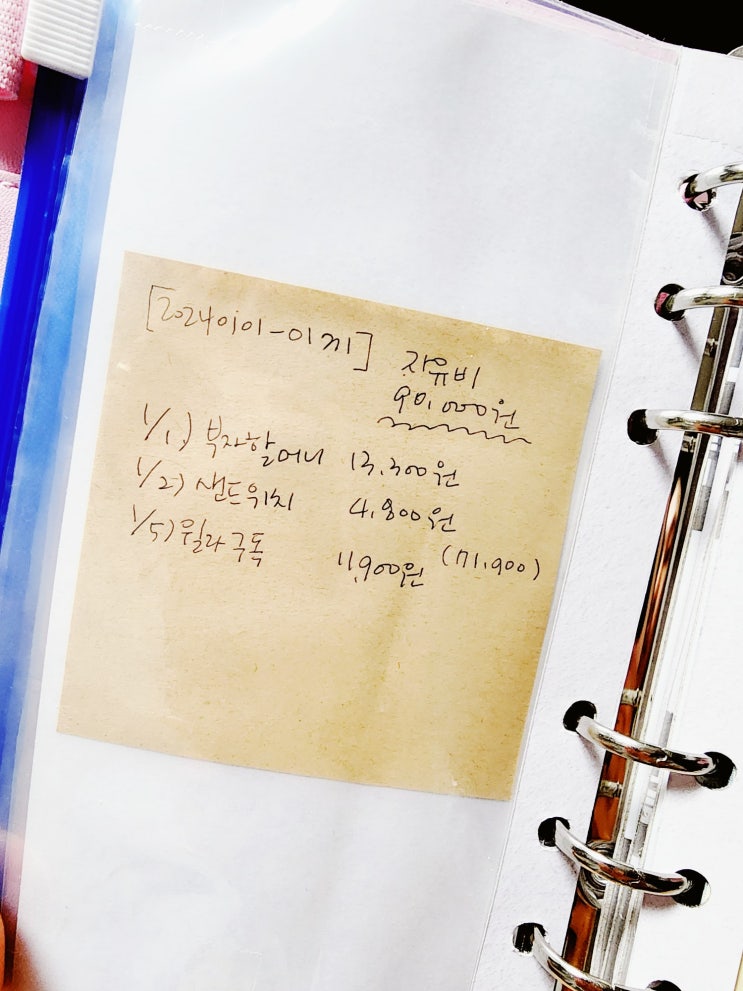 [20240101-0131] 자유비
90.000원
1/1) 부자할머니 13.300원
1/2) 샌드위치 4.800원
1/5) 윌라구독 11.900원 (71.900)